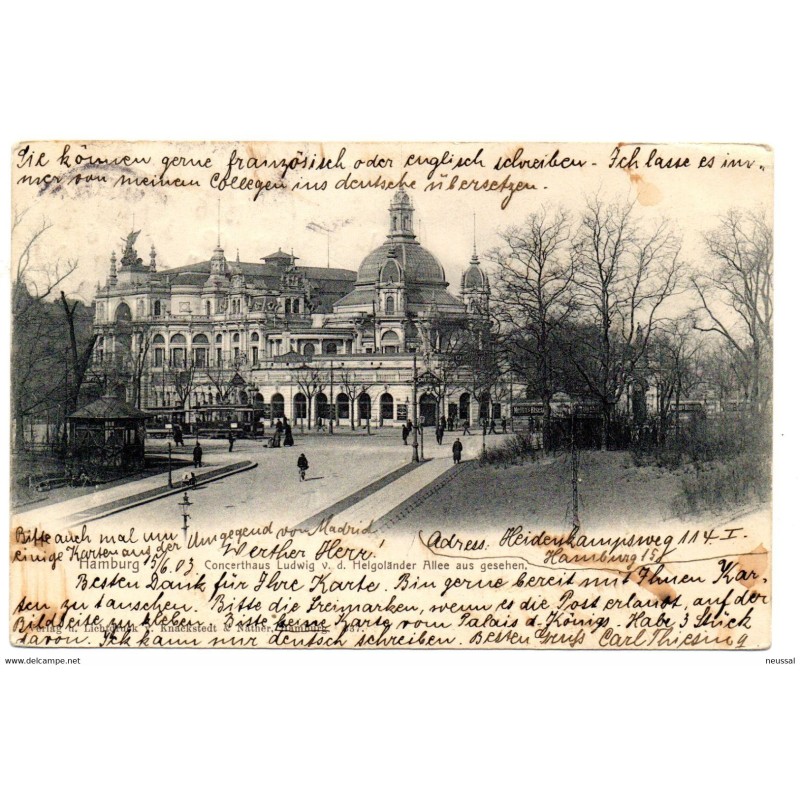 Sie können gerne französisch oder englisch schreiben - Ich lasse es im-
mer von meinem Collegen ins deutsche übersetzen.
Bitte auch mal um
einige Karten aus der Umgegend von Madrid
Adress: Heidenkampsweg 114 I
Hamburg 15/
Werther Herr!
Hamburg 15/6.03
Concerthaus Ludwig v. d. Helgoländer Allee aus gesehen.
Besten Dank für Ihre Karte. Bin gerne bereit mit Ihnen Kar-
ten zu tauschen. Bitte die Freimarken, wenn es die Post erlaubt, auf der
Bildseite zu kleben. Bitte keine Karte vom Palais d. Königs. Habe 3 Stück
Verlag u. Lichtdruck v. Knackstedt & Näther, Hamburg. 37.
davon. Ich kann nur deutsch schreiben. Besten Gruß Carl Thiesing
delcampe.net
neussal